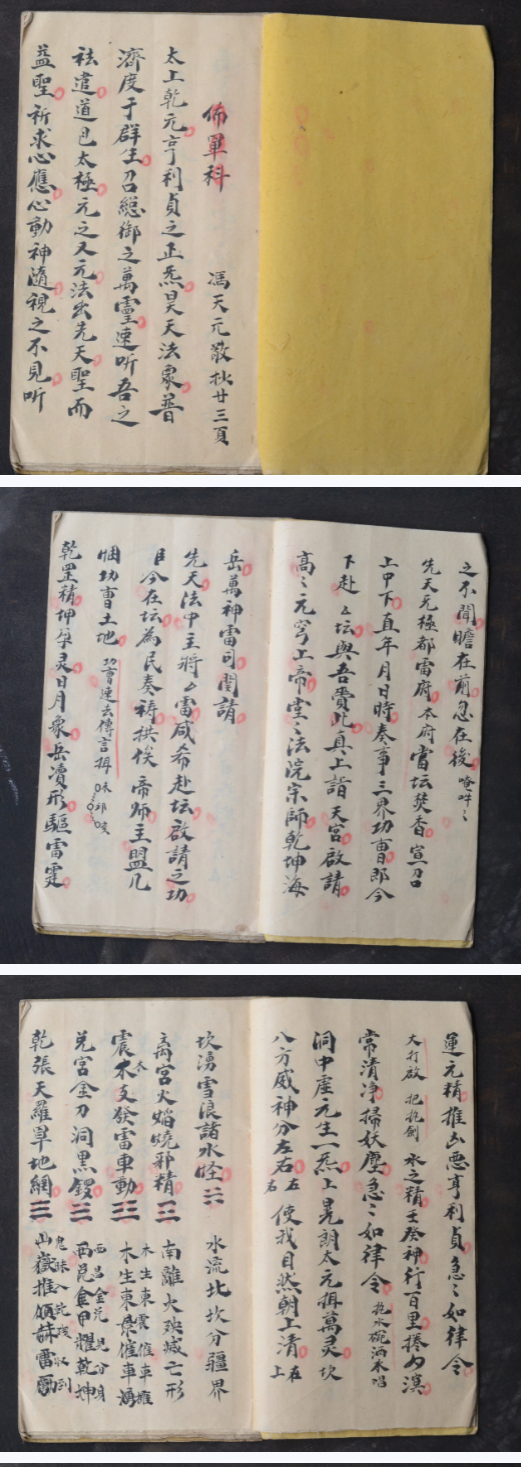 佈單科 馮天元敬抄廿三頁
太上乾元亨利貞之正炁昊天法象普
濟度于群生召總御之萬靈速听吾之
祛遣道包太極元之又元法出先天聖而
益聖祈求心應心動神隨視之不見听
之不聞瞻在前忽在後
先天元極都雷府本府當坛焚香宣召
上中下直年月日時奏事三界功曹即今
下赴坛與吾賫此真上詣天宮啟請
高元穹上帝法院宗師乾坤海
岳萬神雷司閣請
先天法中主將雷威希赴坛啟請之功
今在坛為民奏祷拱俟帝師主盟凡
功曹土地功曹速去傳言
乾罡精坤孕灵日月象岳瀆形驅雷霆
運元精推凶惡亨利貞急如律令
大打啟水之精壬癸神行百里捲
常清净掃妖塵急如律令水碗洒水唱
洞中虛元生一炁上晃朗太元揖萬灵坎
八方威神分左右使我自然朝上清
坎湧雪浪諸水怪水流北坎分疆界
离宮火焰燒邪精南離火滅亡形
震木支發雷車動木生東震催車
兑宮金刀洞黑西昆金甲耀乾坤
乾張天羅罩地網山嶽推傾赫雷